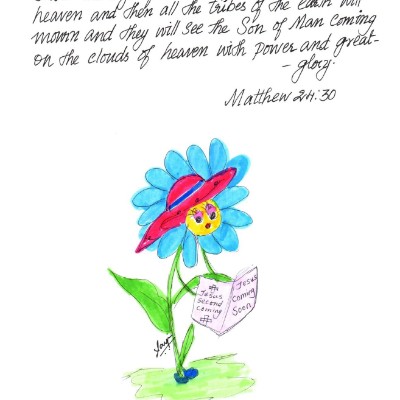 heaven and then all the tribes of the earth will
mourn and they will see the Son of Man coming
on the clouds of heaven with power and great-
- glory.
Matthew 24:30
Jesus
second
coming
Jesus
coming
Soon